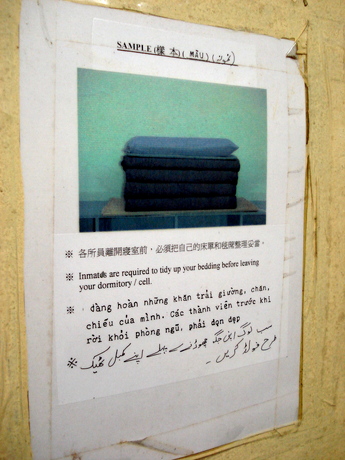 SAMPLE (樣 本) ( MẪU ) ( نمونہ )
※ 各所員離開寢室前，必須把自己的床單和毯褥整理妥當。
※ Inmates are required to tidy up your bedding before leaving
your dormitory / cell.
※ đàng hoàn những khăn trải giường, chăn,
chiếu của mình. Các thành viên trước khi
rời khỏi phòng ngũ, phải dọn dẹp
※ سب لوگ اپنی جگہ چھوڑنے سے پہلے اپنے کمبل ٹھیک
طرح فولڈ کریں۔